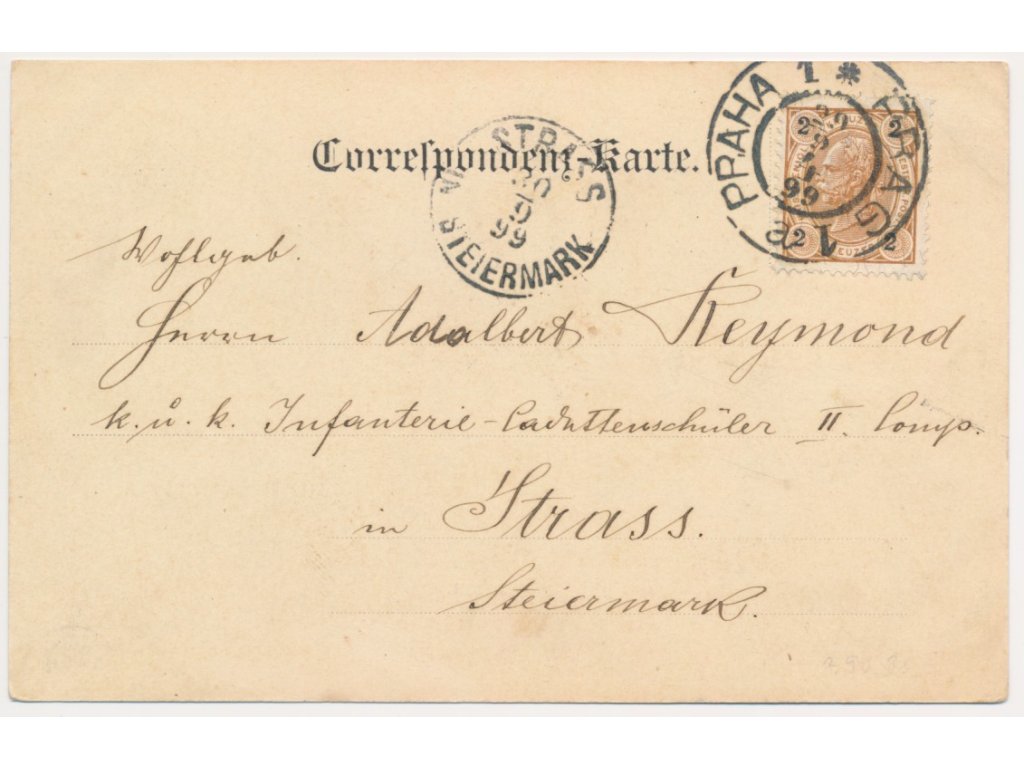 Correspondenz-Karte.
PRAHA 1 * PRAG 1
29
9
99
STRASS
STEIERMARK
30
9
99
2 2
2 2
Wohlgeb.
Herrn Adalbert Reymond
k. u. k. Infanterie-Cadettenschüler II. Comp.
in Strass.
Steiermark.